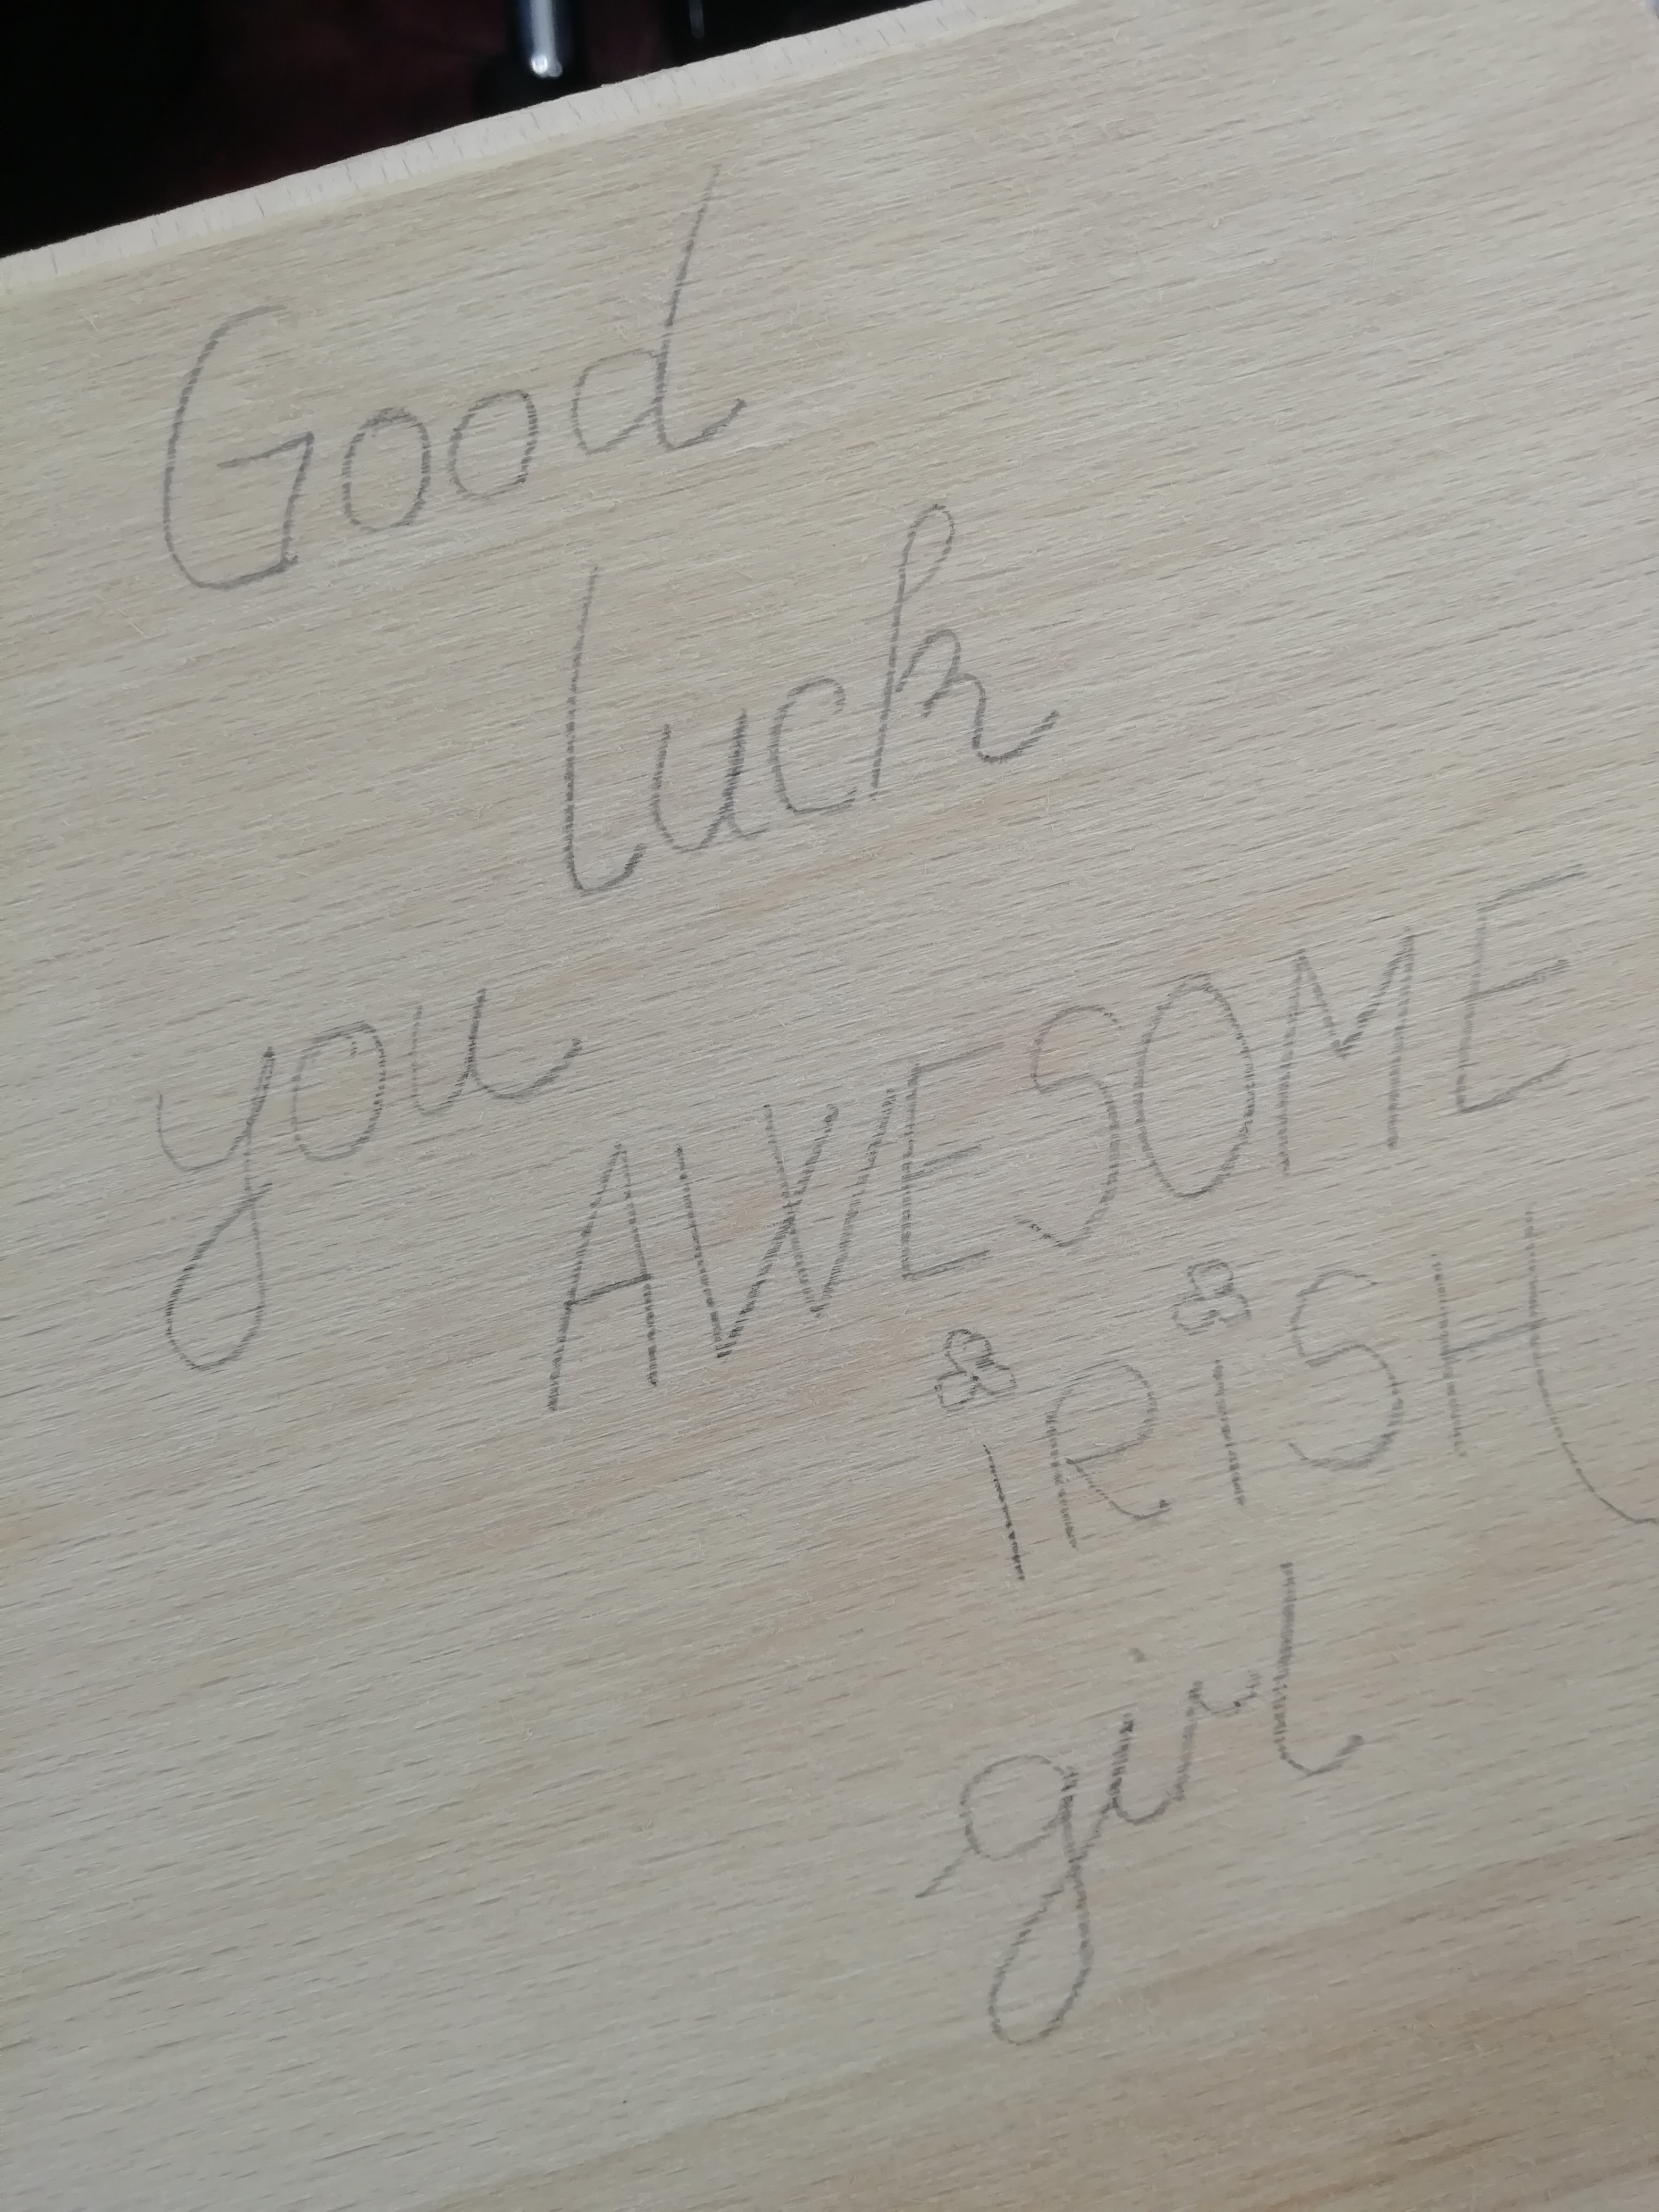 Good
luck
you AWESOME
IRISH
girl